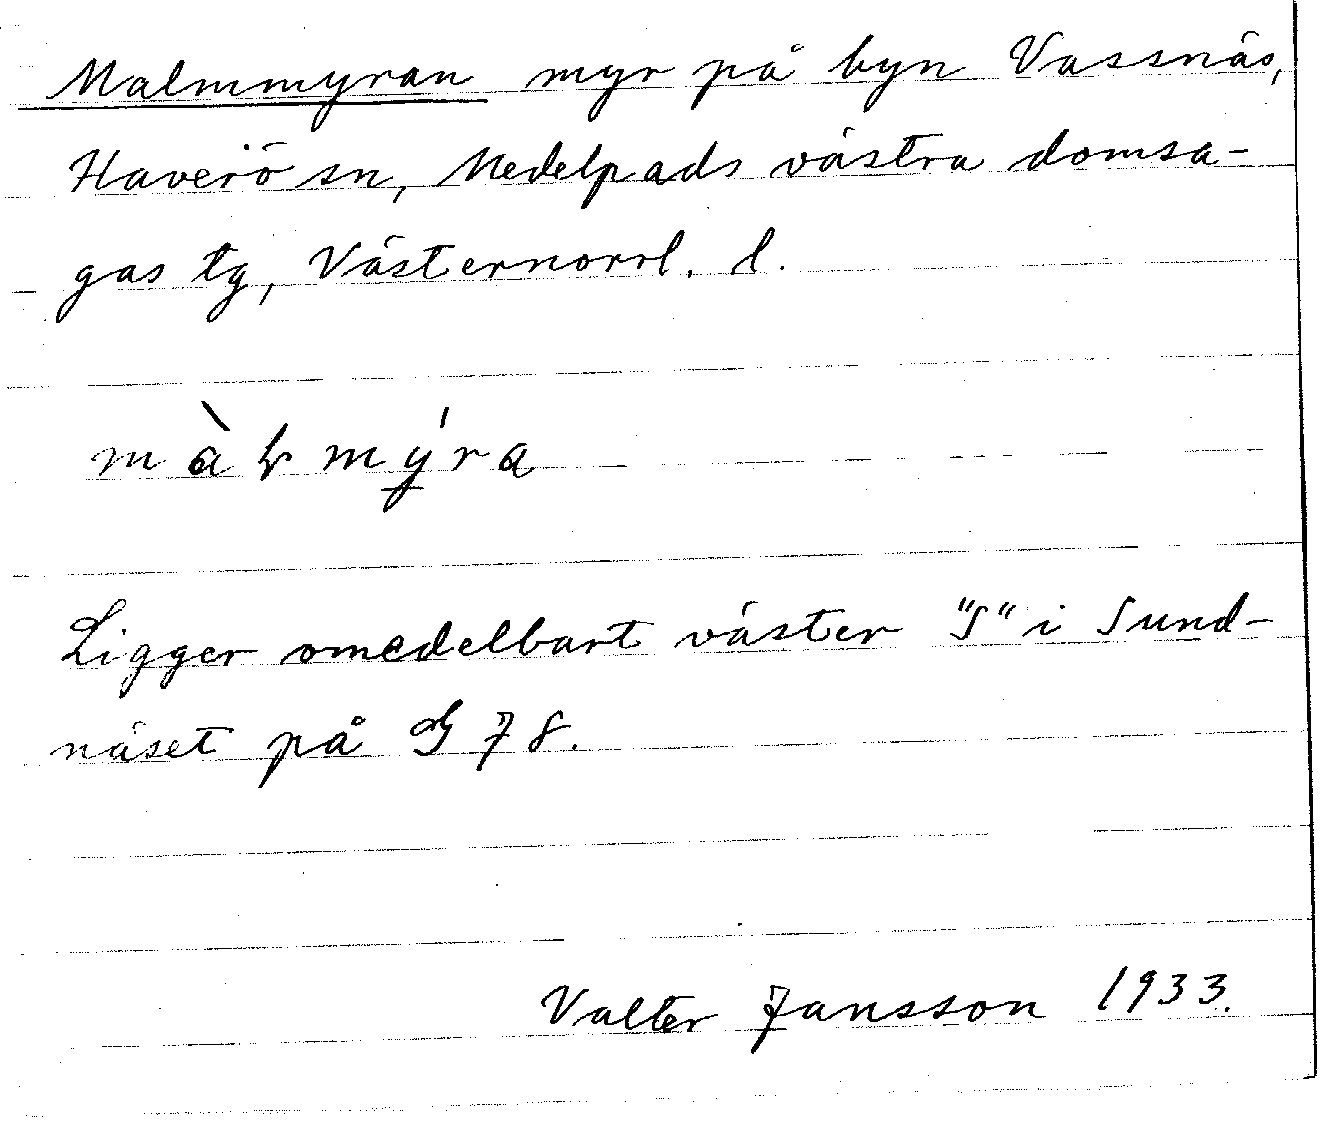 Malmmyran myr på byn Vassnäs,
Haverö sn, Medelpads västra domsa-
gas tg, Västernorrl. l.
Ligger omedelbart väster "S" i Sund-
näset på G 78.
Valter Jansson 1933.